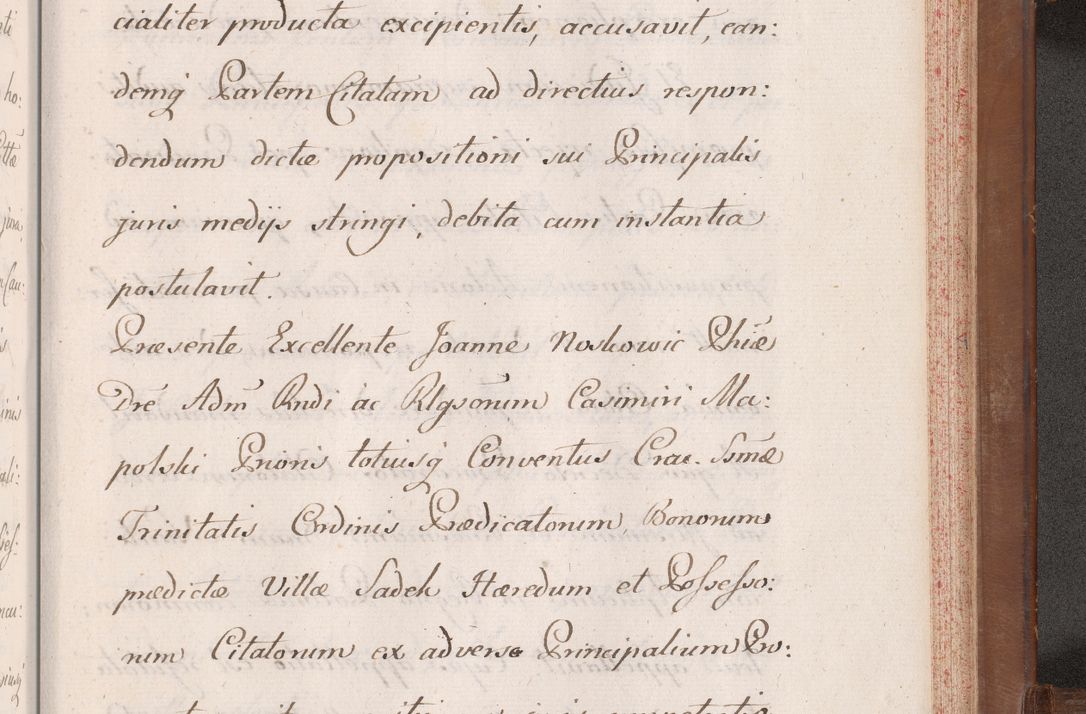 cialiter producta excipientis, accusavit, ean:
demq Partem Citatam ad directius respon:
dendum dictæ propositioni sui Principalis
juris medijs stringi, debita cum instantia
postulavit.
Præsente Excellente Joanne Noskowic Phiæ
Dre Adm Rndi ac Rlgsorum Casimiri Ma:
polski Prioris totiusq Conventus Crac. Ssmæ
Trinitatis Ordinis Prædicatorum, Bonorum
prædictæ Villæ Sadek Hæredum et Possesso:
rum Citatorum ex adverso Principalium Pro: